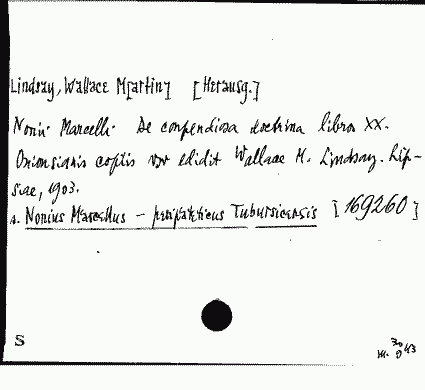 Lindsay, Wallace M[artin] [Herausg.]
Nonii Marcelli De conpendiosa doctrina libros XX.
Onionsianis copiis usus edidit Wallace M. Lindsay. Lip-
siae, 1903.
s. Nonius Marcellus - peripateticus Tubursicensis [169260]
S